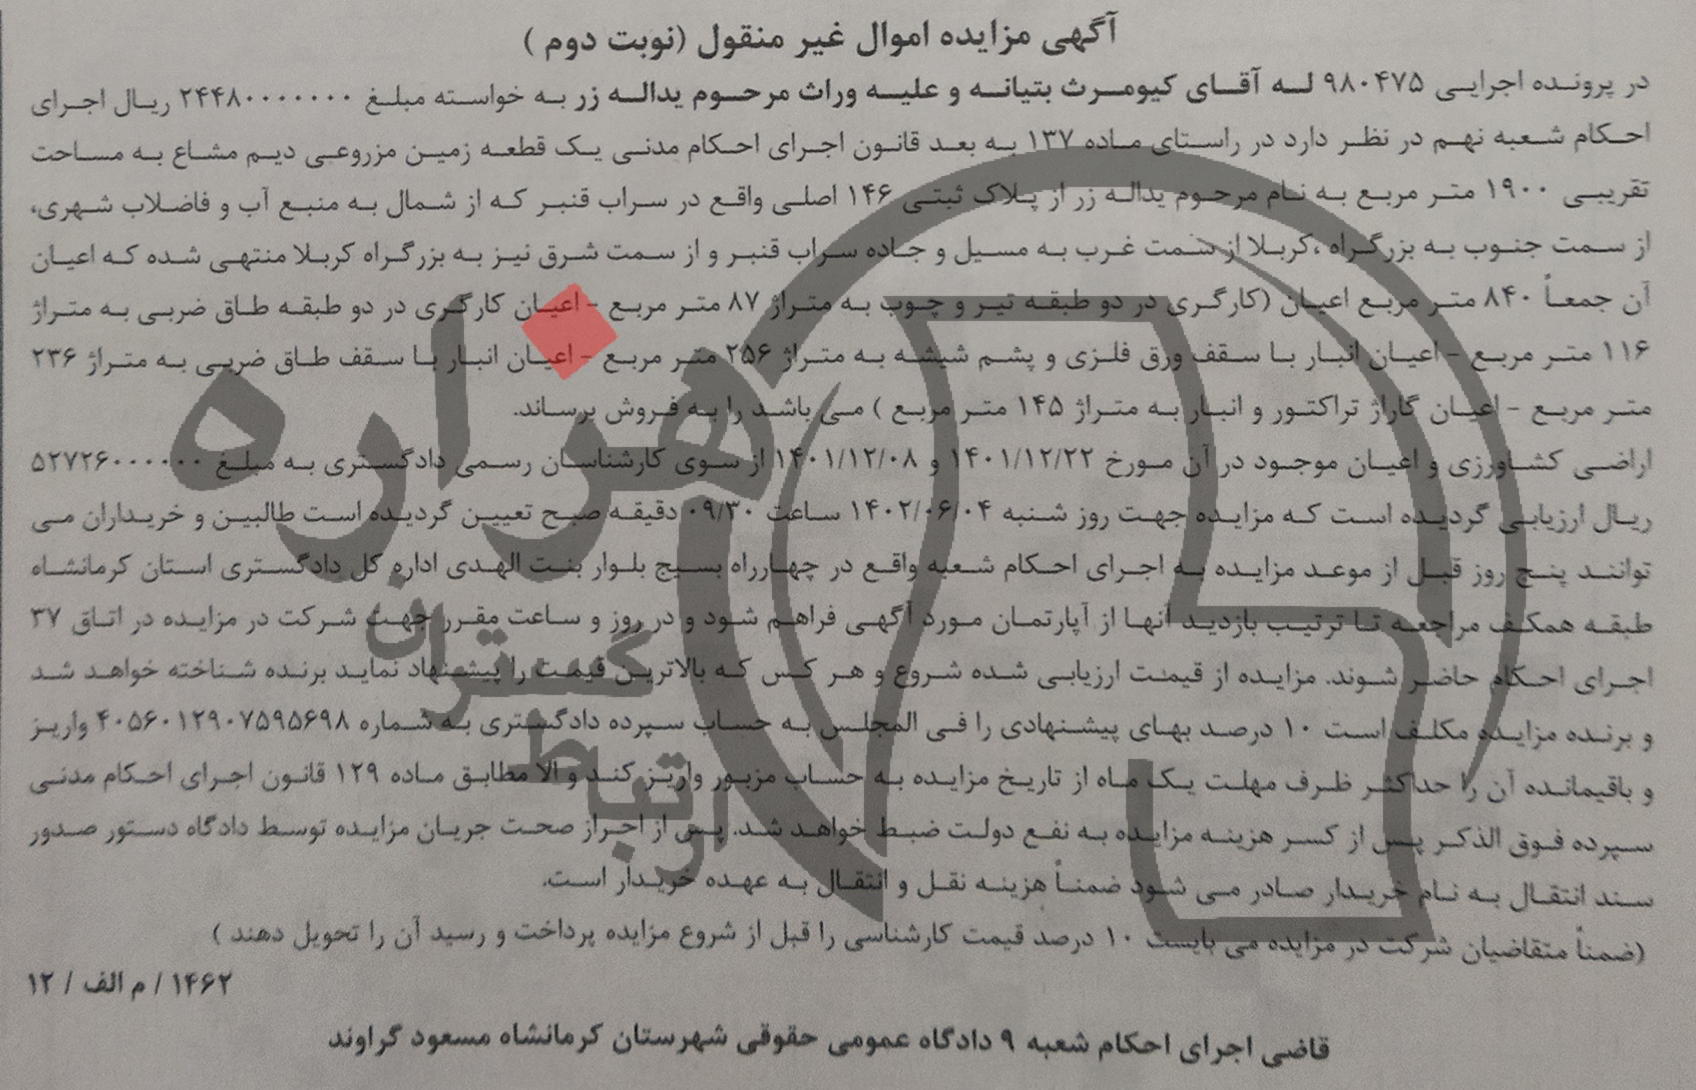 آگهی مزایده اموال غیر منقول (نوبت دوم )
در پرونده اجرایی ۹۸۰۴۷۵ له آقای کیومرث بتیانه و علیه وراث مرحوم یداله زر به خواسته مبلغ ۲۴۴۸۰۰۰۰۰۰۰ ریال اجرای
احکام شعبه نهم در نظر دارد در راستای ماده ۱۳۷ به بعد قانون اجرای احکام مدنی یک قطعه زمین مزروعی دیم مشاع به مساحت
تقریبی ۱۹۰۰ متر مربع به نام مرحوم یداله زر از پلاک ثبتی ۱۴۶ اصلی واقع در سراب قنبر که از شمال به منبع آب و فاضلاب شهری،
از سمت جنوب به بزرگراه ،کربلا از سمت غرب به مسیل و جاده سراب قنبر و از سمت شرق نیز به بزرگراه کربلا منتهی شده که اعیان
آن جمعاً ۸۴۰ متر مربع اعیان (کارگری در دو طبقه تیر و چوب به متراژ ۸۷ متر مربع - اعیان کارگری در دو طبقه طاق ضربی به متراژ
۱۱۶ متر مربع - اعیان انبار با سقف ورق فلزی و پشم شیشه به متراژ ۲۵۶ متر مربع - اعیان انبار با سقف طاق ضربی به متراژ ۲۳۶
متر مربع - اعیان گاراژ تراکتور و انبار به متراژ ۱۴۵ متر مربع ) می باشد را به فروش برساند.
اراضی کشاورزی و اعیان موجود در آن مورخ ۱۴۰۱/۱۲/۲۲ و ۱۴۰۱/۱۲/۰۸ از سوی کارشناسان رسمی دادگستری به مبلغ ۵۲۷۲۶۰۰۰۰۰۰
ریال ارزیابی گردیده است که مزایده جهت روز شنبه ۱۴۰۲/۰۶/۰۴ ساعت ۰۹/۳۰ دقیقه صبح تعیین گردیده است طالبین و خریداران می
توانند پنج روز قبل از موعد مزایده به اجرای احکام شعبه واقع در چهارراه بسیج بلوار بنت الهدی اداره کل دادگستری استان کرمانشاه
طبقه همکف مراجعه تا ترتیب بازدید آنها از آپارتمان مورد آگهی فراهم شود و در روز و ساعت مقرر جهت شرکت در مزایده در اتاق ۳۷
اجرای احکام حاضر شوند. مزایده از قیمت ارزیابی شده شروع و هر کس که بالاترین قیمت را پیشنهاد نماید برنده شناخته خواهد شد
و برنده مزایده مکلف است ۱۰ درصد بهای پیشنهادی را فی المجلس به حساب سپرده دادگستری به شماره ۴۰۵۶۰۱۲۹۰۷۵۹۵۶۹۸ واریز
و باقیمانده آن را حداکثر ظرف مهلت یک ماه از تاریخ مزایده به حساب مزبور واریز کند و الا مطابق ماده ۱۲۹ قانون اجرای احکام مدنی
سپرده فوق الذکر پس از کسر هزینه مزایده به نفع دولت ضبط خواهد شد. پس از احراز صحت جریان مزایده توسط دادگاه دستور صدور
سند انتقال به نام خریدار صادر می شود ضمناً هزینه نقل و انتقال به عهده خریدار است.
(ضمناً متقاضیان شرکت در مزایده می بایست ۱۰ درصد قیمت کارشناسی را قبل از شروع مزایده پرداخت و رسید آن را تحویل دهند )
۱۴۶۲ / م الف / ۱۲
قاضی اجرای احکام شعبه ۹ دادگاه عمومی حقوقی شهرستان کرمانشاه مسعود گراوند
هزاره
گستران
ارتباط